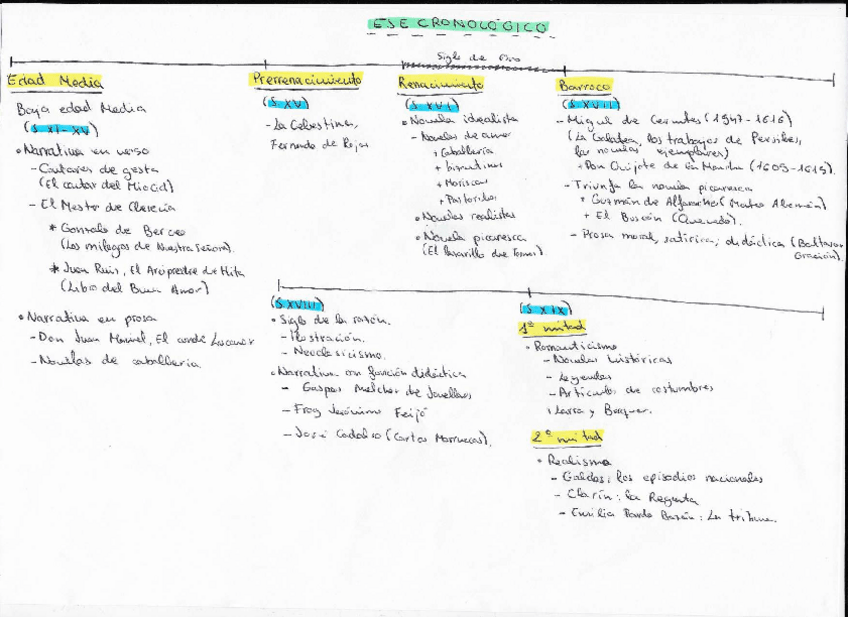 EJE CRONOLÓGICO
Siglo de Oro
Edad Media
Baja edad Media
(S XI-XV)
• Narrativa en verso
- Cantares de gesta
(El cantar del Mio Cid)
- El Mester de Clerecía
* Gonzalo de Berceo
(Los milagros de Nuestra Señora).
* Juan Ruiz, El Arcipreste de Hita
(Libro del Buen Amor)
• Narrativa en prosa
- Don Juan Manuel, El conde Lucanor
- Novelas de caballería.
Prerrenacimiento
(S XV)
- La Celestina,
Fernando de Rojas
Renacimiento
(S XVI)
• Novela idealista
- Novelas de amor
+ Caballería
+ bizantinas
+ Moriscas
+ Pastoriles
• Novelas realistas
• Novela picaresca
(El Lazarillo de Tormes)
Barroco
(S XVII)
- Miguel de Cervantes (1547-1616)
(La Galatea, los trabajos de Persiles,
las novelas ejemplares)
+ Don Quijote de la Mancha (1605-1615).
- Triunfa la novela picaresca
* Guzmán de Alfarache (Mateo Alemán)
+ El Buscón (Quevedo).
- Prosa moral, satírica, didáctica (Baltasar
Gracián).
(S XVIII)
• Siglo de la razón.
- Ilustración.
- Neoclasicismo.
• Narrativa con función didáctica
- Gaspar Melchor de Jovellanos
- Fray Jerónimo Feijó
- José Cadalso (Cartas Marruecas).
(S XIX)
1ª mitad
• Romanticismo
- Novelas históricas
- Leyendas
- Artículos de costumbres
Larra y Becquer.
2ª mitad
• Realismo
- Galdós: los episodios nacionales
- Clarín: la Regenta
- Emilia Pardo Bazán: La tribuna.